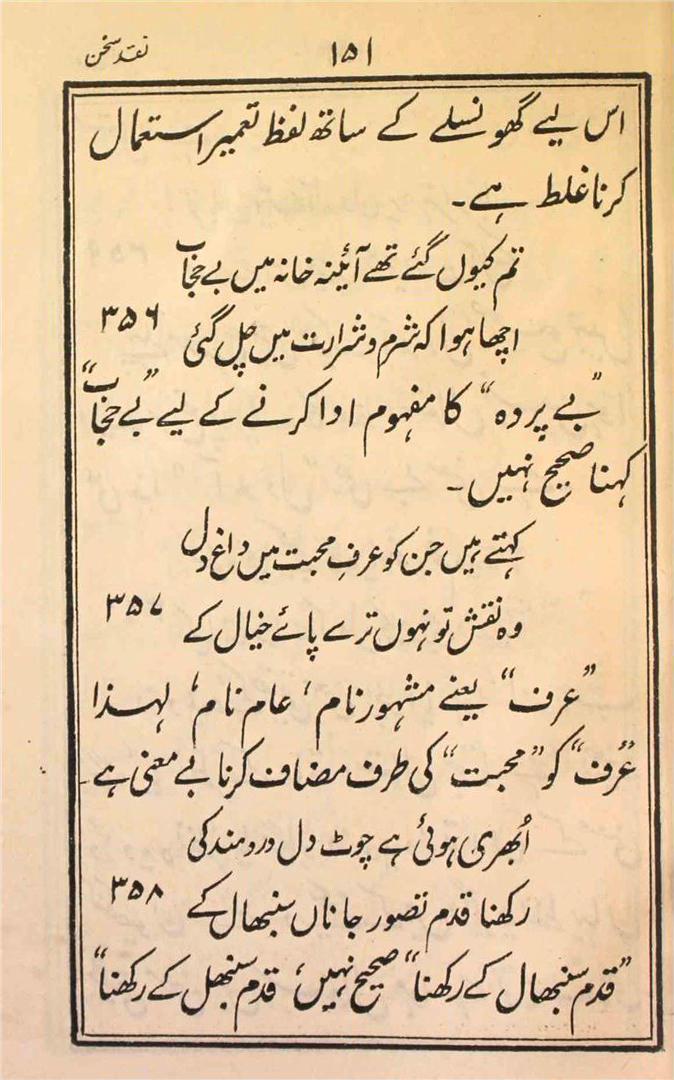 نقد سخن
۱۵۱
اس لیے گھونسلے کے ساتھ لفظ تعمیر استعمال
کرنا غلط ہے۔
تم کیوں گئے تھے آئینہ خانہ میں بے حجاب
اچھا ہوا کہ شرم و شرارت میں چل گئی ۳۵۶
”بے پردہ“ کا مفہوم ادا کرنے کے لیے ”بے حجاب“
کہنا صحیح نہیں۔
کہتے ہیں جن کو عرفِ محبت میں داغِ دل
وہ نقش تو نہوں ترے پائے خیال کے ۳۵۷
”عرف“ یعنے مشہور نام، عام نام، لہذا
”عُرف“ کو ”محبت“ کی طرف مضاف کرنا بے معنی ہے۔
اُبھری ہوئی ہے چوٹ دل دردمند کی
رکھنا قدم تصور جاناں سنبھال کے ۳۵۸
”قدم سنبھال کے رکھنا“ صحیح نہیں، قدم سنبھل کے رکھنا“